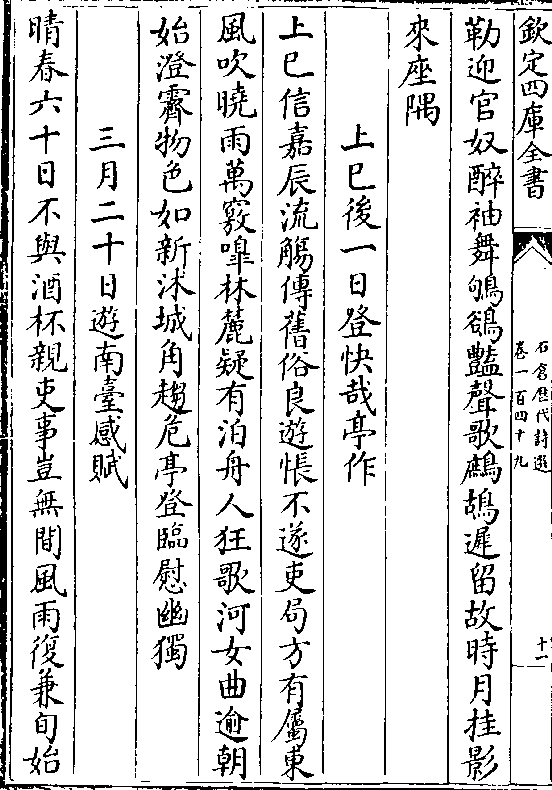 欽定四庫全書
石倉歷代詩選
卷一百四十九
十一
勒迎官奴醉袖舞鴝鵒豔聲歌鷓鴣遲留故時月挂影
來座隅
上巳後一日登快哉亭作
上巳信嘉辰流觴傳舊俗良遊悵不遂吏局方有屬東
風吹曉雨萬竅嘷林麓疑有泊舟人狂歌河女曲逾朝
始澄霽物色如新沐城角趨危亭登臨慰幽獨
三月二十日遊南臺感賦
晴春六十日不與酒杯親吏事豈無閒風雨復兼旬始